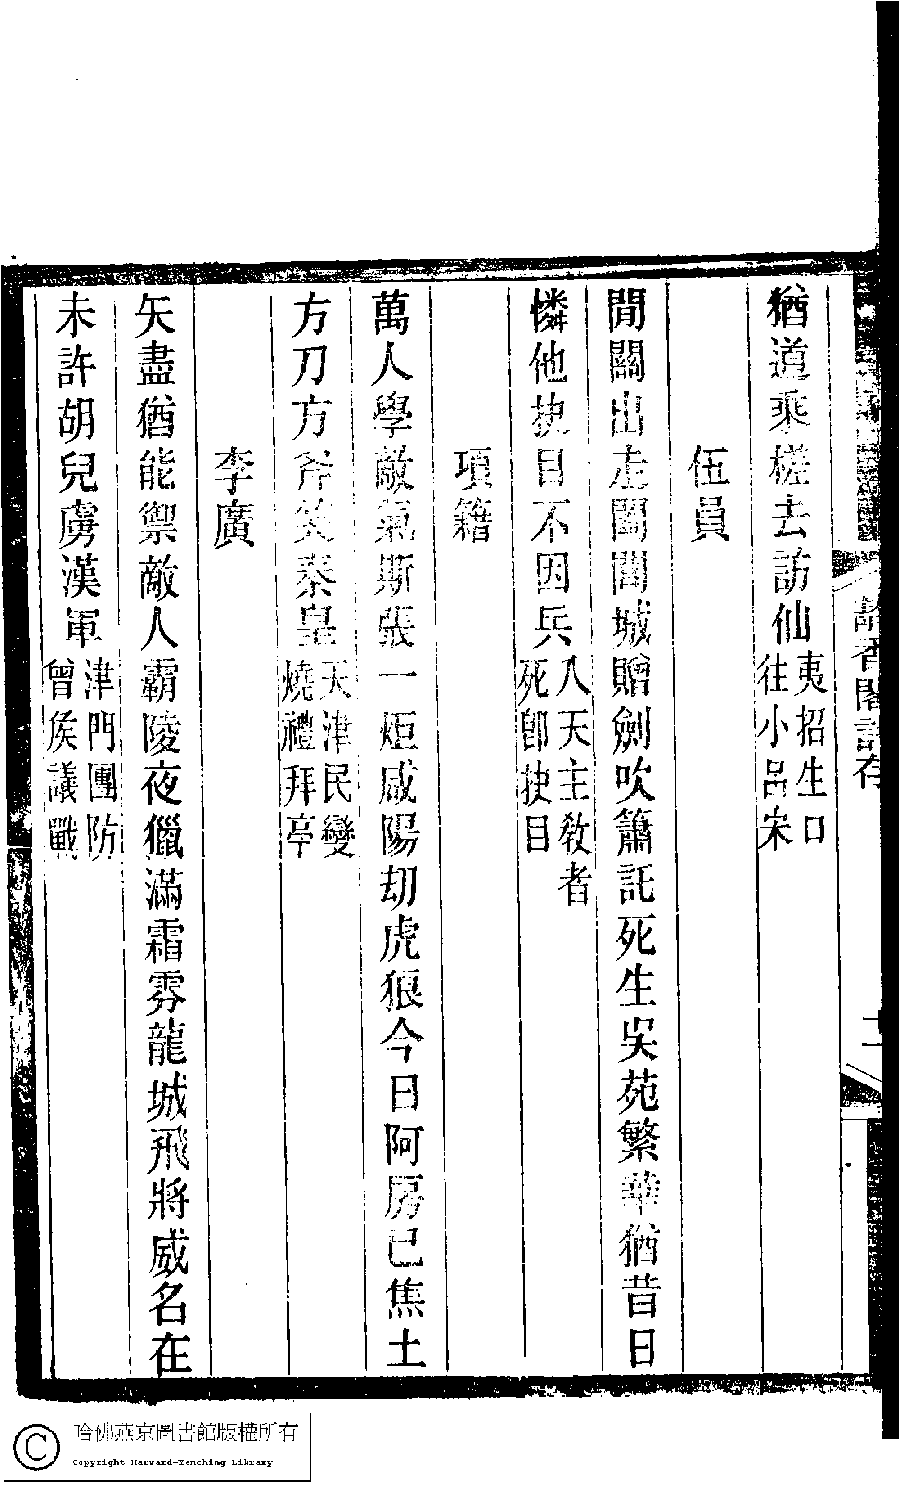 香閣詩存
猶道乘槎去訪仙夷招生口往小呂宋
伍員
間關出走闔閭城贈劍吹簫託死生吳苑繁華猶昔日
憐他抉目不因兵入天主敎者死卽抉目
項籍
萬人學敵氣斯張一炬咸陽刼虎狼今日阿房已焦土
方刀方斧笑秦皇天津民變燒禮拜亭
李廣
矢盡猶能禦敵人霸陵夜獵滿霜雰龍城飛將威名在
未許胡兒虜漢軍津門團防曾侯議戰
哈佛燕京圖書館版權所有
Copyright Harvard-Yenching Library